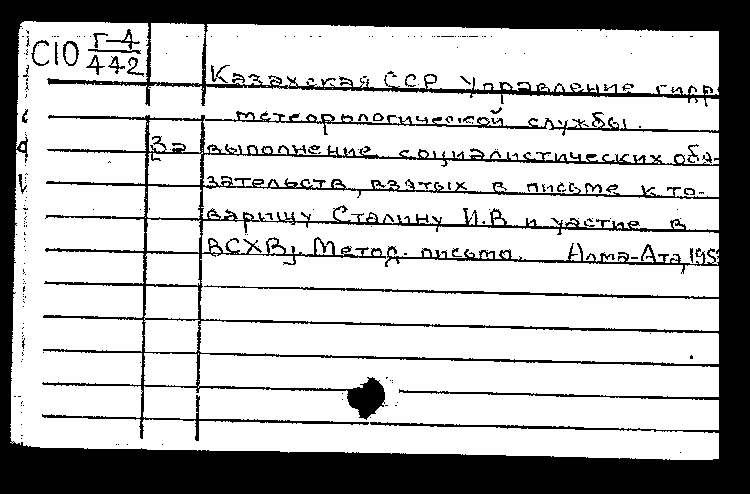 С10 Г-4
442
Казахская ССР Управление гидро
метеорологической службы.
За выполнение социалистических обя-
зательств, взятых в письме к то-
варищу Сталину И.В и участие в
ВСХВ. Метод. письмо. Алма-Ата,